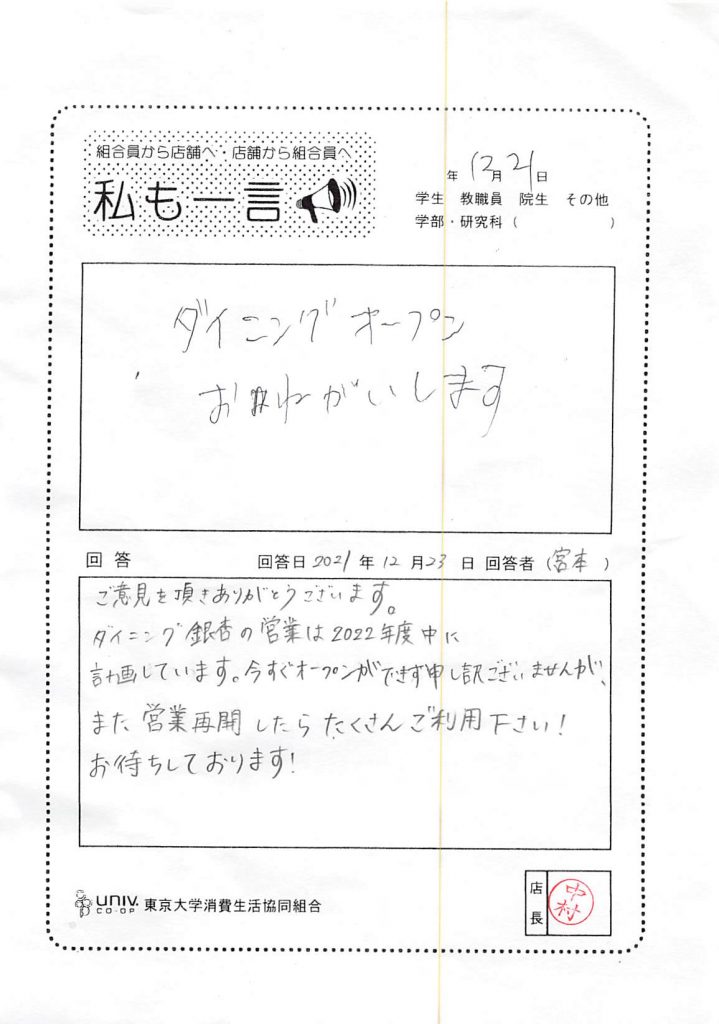 組合員から店舗へ・店舗から組合員へ
私も一言
年 12月 21日
学生 教職員 院生 その他
学部・研究科 ( )
ダイニングオープン
おねがいします
回答 回答日 2021 年 12 月 23 日 回答者 (宮本)
ご意見を頂きありがとうございます。
ダイニング銀杏の営業は2022年度中に
計画しています。今すぐオープンができず申し訳ございませんが、
また営業再開したらたくさんご利用下さい!
お待ちしております!
UNIV.
CO-OP 東京大学消費生活協同組合
店長
中村